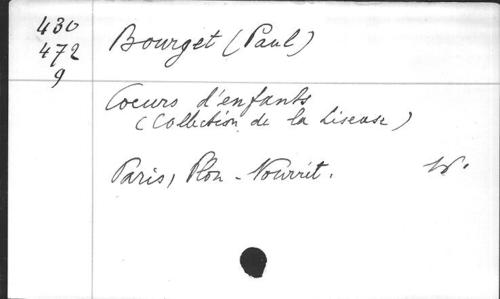 430
472
9
Bourget (Paul)
Coeurs d'enfants
(Collection de la Liseuse)
Paris, Plon - Nourrit.